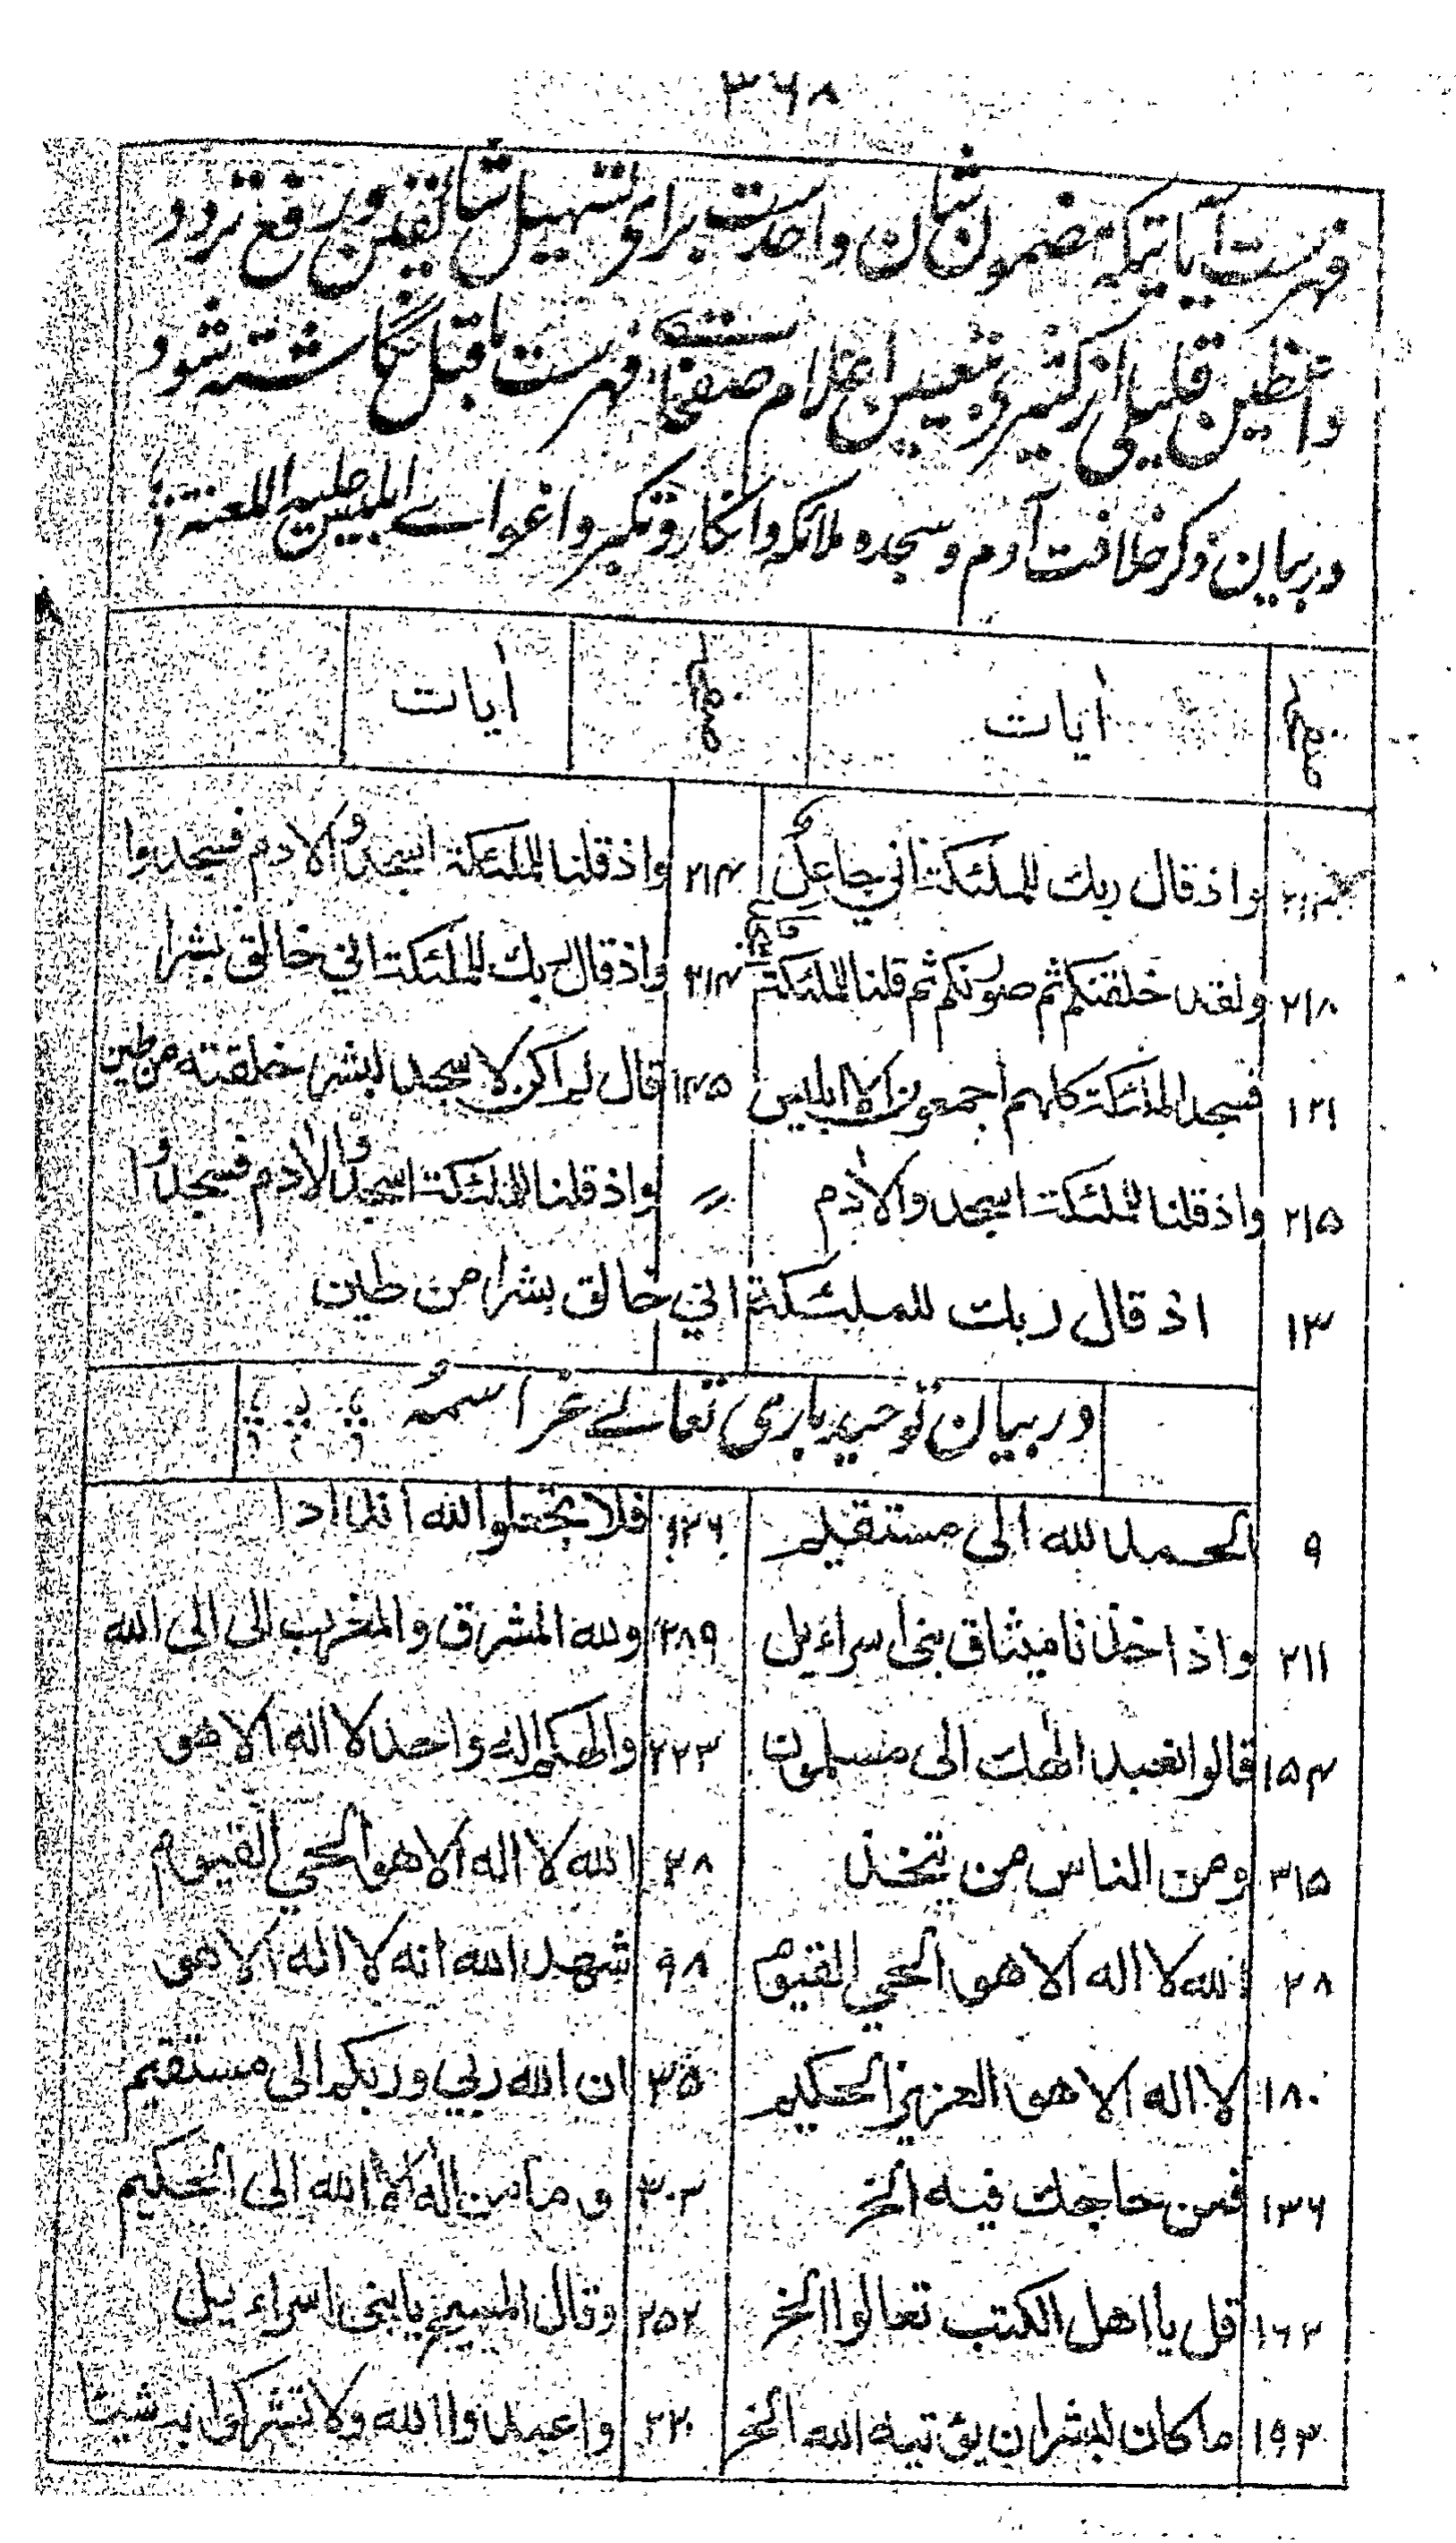 ۳۶۸
فهرست آیاتیکه مضمون شان واحدست برای تسهیل شائقین و رفع تردد
واعظین قلیلی از کثیری بتعیین اعلام صفحات فهرست ماقبل نگاشته شود
در بیان ذکر خلافت آدم و سجده ملائکه و انکار و تکبر و اغوای ابلیس علیه اللعنة
صفحه ایات صفحه ایات
واذ قال ربك للملئكة اني جاعل ۲۱۴ واذ قلنا للملئكة اسجدوا لادم فسجدوا
۲۱۸ ولقد خلقنكم ثم صورنكم ثم قلنا للملئكة ۲۱۴ واذ قال ربك للملئكة اني خالق بشرا
۱۲۱ فسجد الملئكة كلهم اجمعون الا ابليس ۱۲۵ قال لم اكن لاسجد لبشر خلقته من طين
۲۱۵ واذ قلنا للملئكة اسجدوا لادم 〃 واذ قلنا للملئكة اسجدوا لادم فسجدوا
۱۳ اذ قال ربك للملئكة اني خالق بشرا من طين
در بیان توحید باری تعالے عز اسمه
۹ الحمد لله الى مستقيم ۱۲۶ فلا تجعلوا لله اندادا
۲۱۱ واذ اخذنا ميثاق بنى اسراءيل ۲۸۹ ولله المشرق والمغرب الى الى الله
۱۵۴ قالوا نعبد الهك الى مسلمون ۲۲۳ والهكم اله واحد لا اله الا هو
۳۱۵ ومن الناس من يتخذ ۲۸ الله لا اله الا هو الحي القيوم
۲۸ الله لا اله الا هو الحي القيوم ۹۸ شهد الله انه لا اله الا هو
۱۸۰ لا اله الا هو العزيز الحكيم ۳۵ ان الله ربي وربكم الى مستقيم
۱۳۶ فمن حاجك فيه الخ ۳۰۳ وما من اله الا الله الى الحكيم
۱۶۲ قل يا اهل الكتب تعالوا الخ ۲۵۲ وقال المسيح يا بنى اسراءيل
۱۹۳ ما كان لبشر ان يؤتيه الله الخ ۲۲۰ واعبدوا الله ولا تشركوا به شيئا